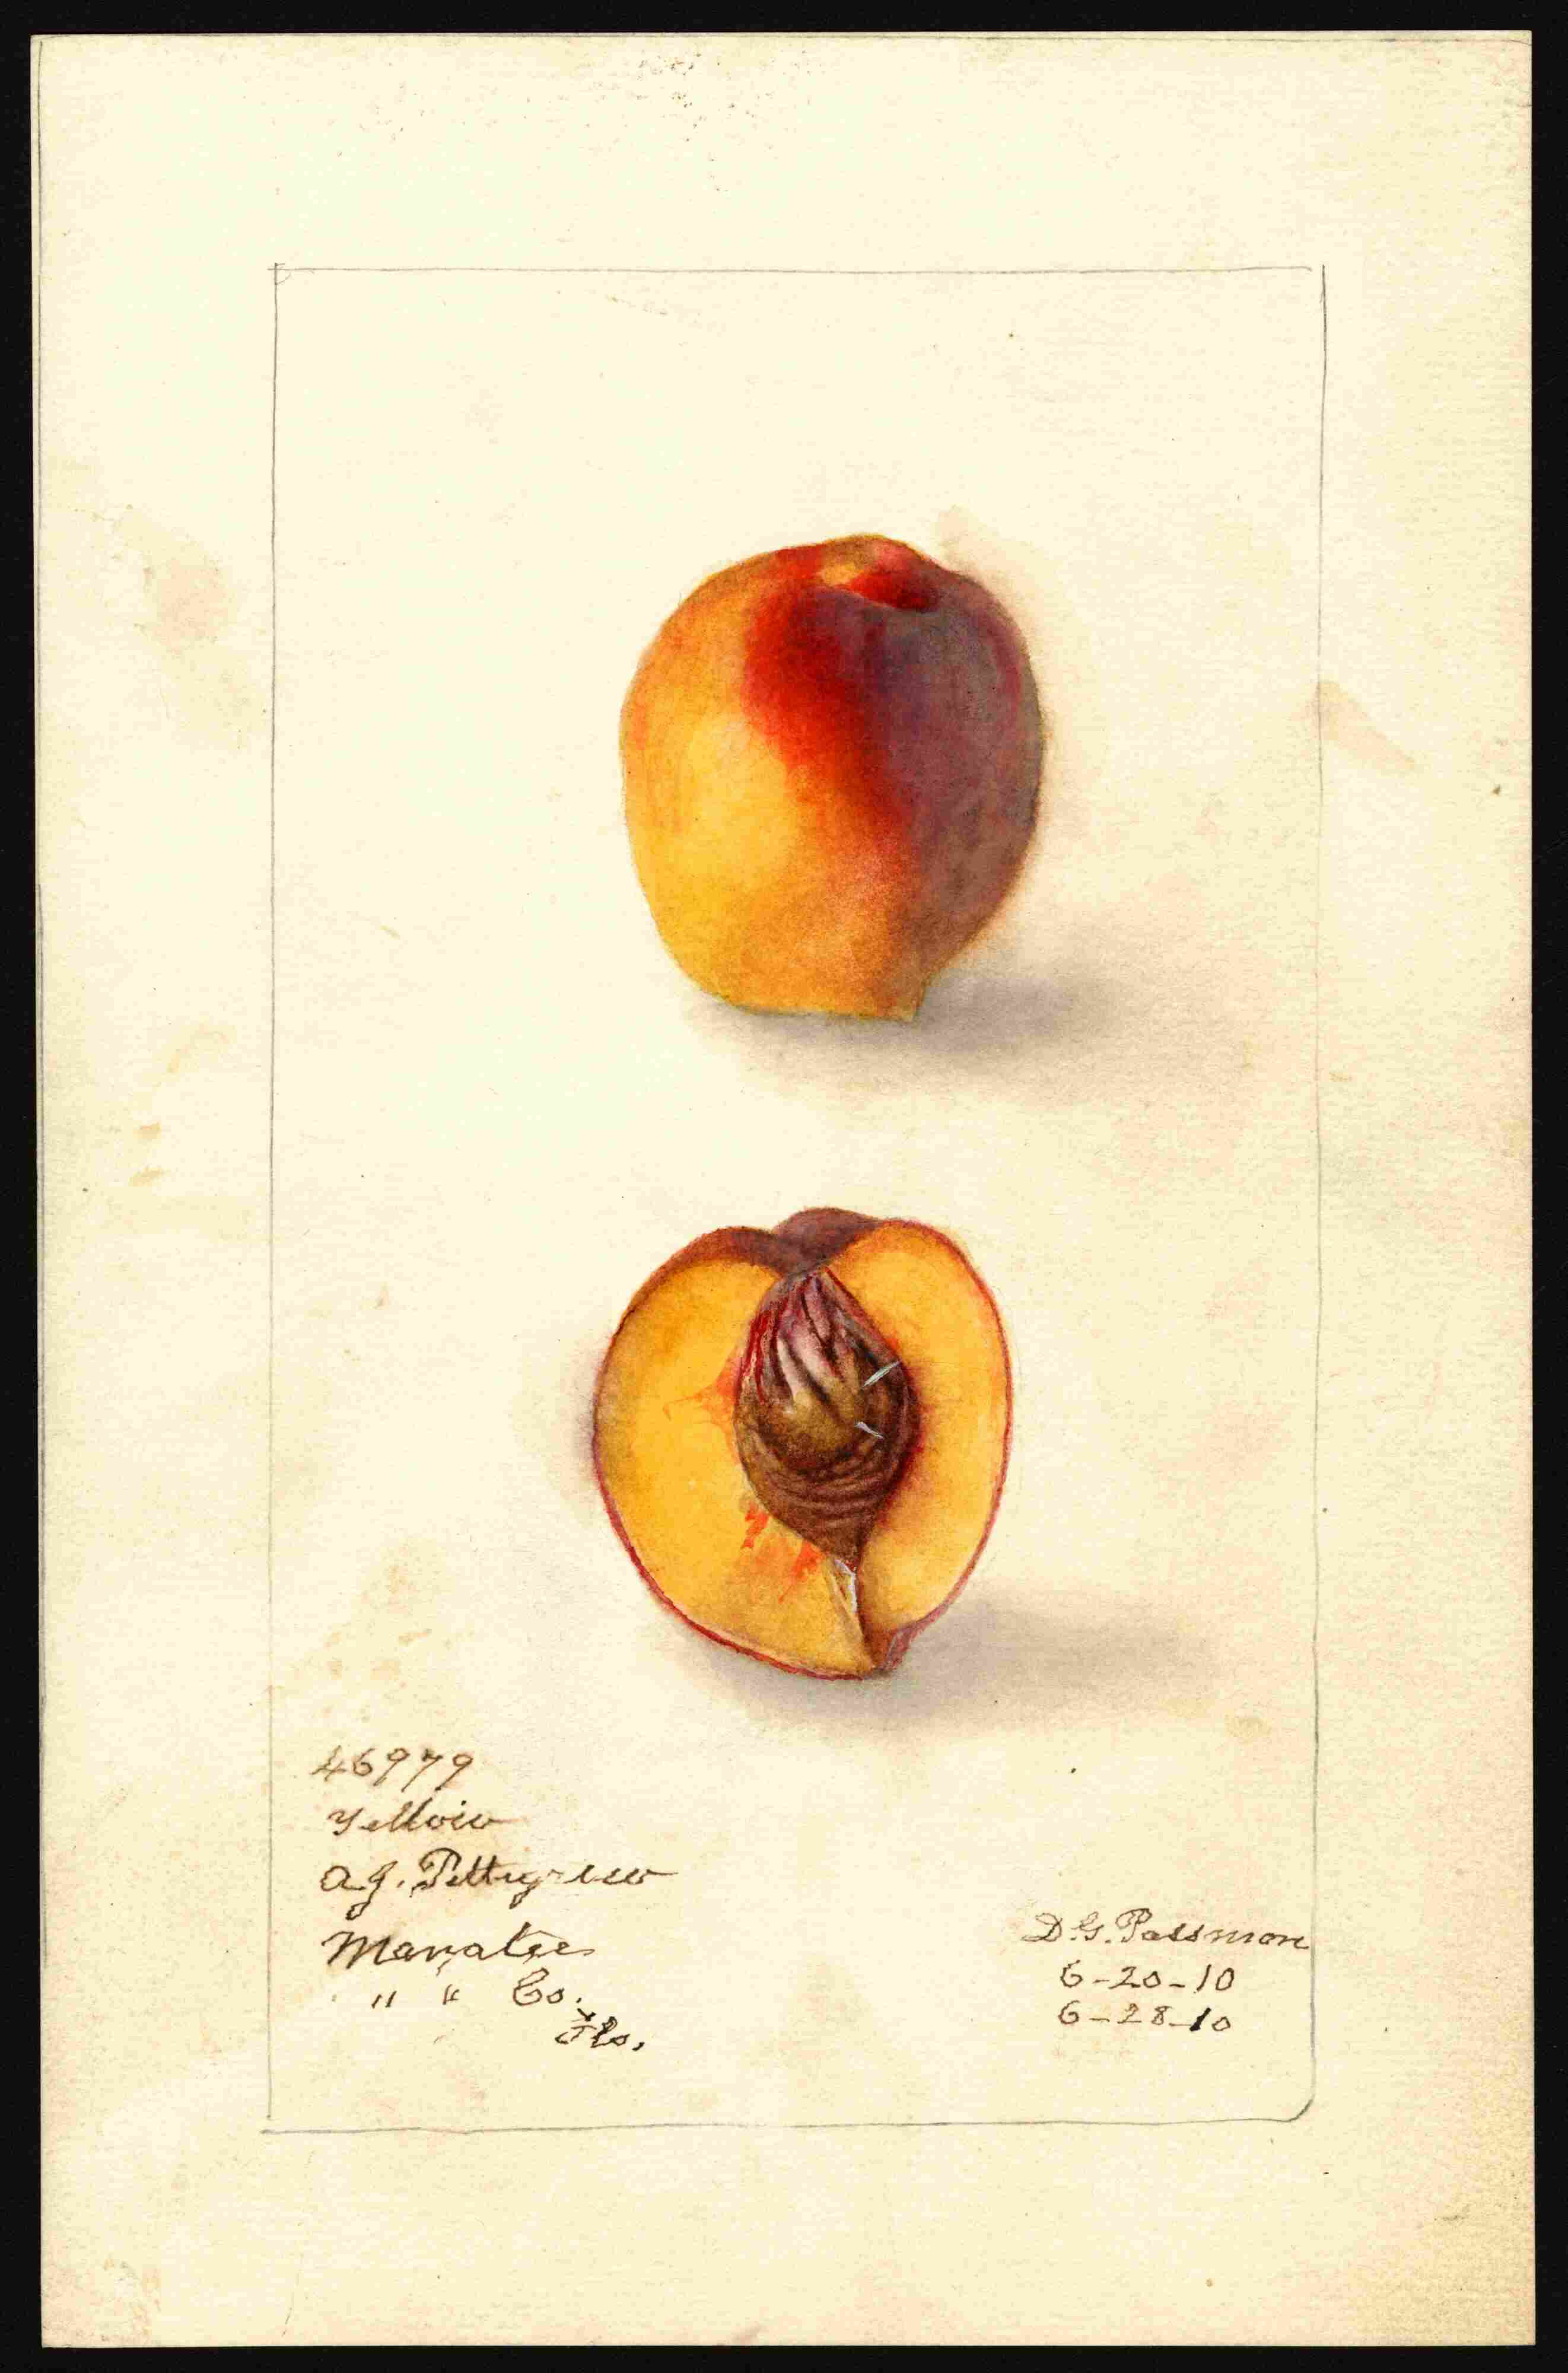 46979
Yellow
A.J. Pettigrew
Manatee
" " Co.
Fla.
D.G. Passmore
6-20-10
6-28-10